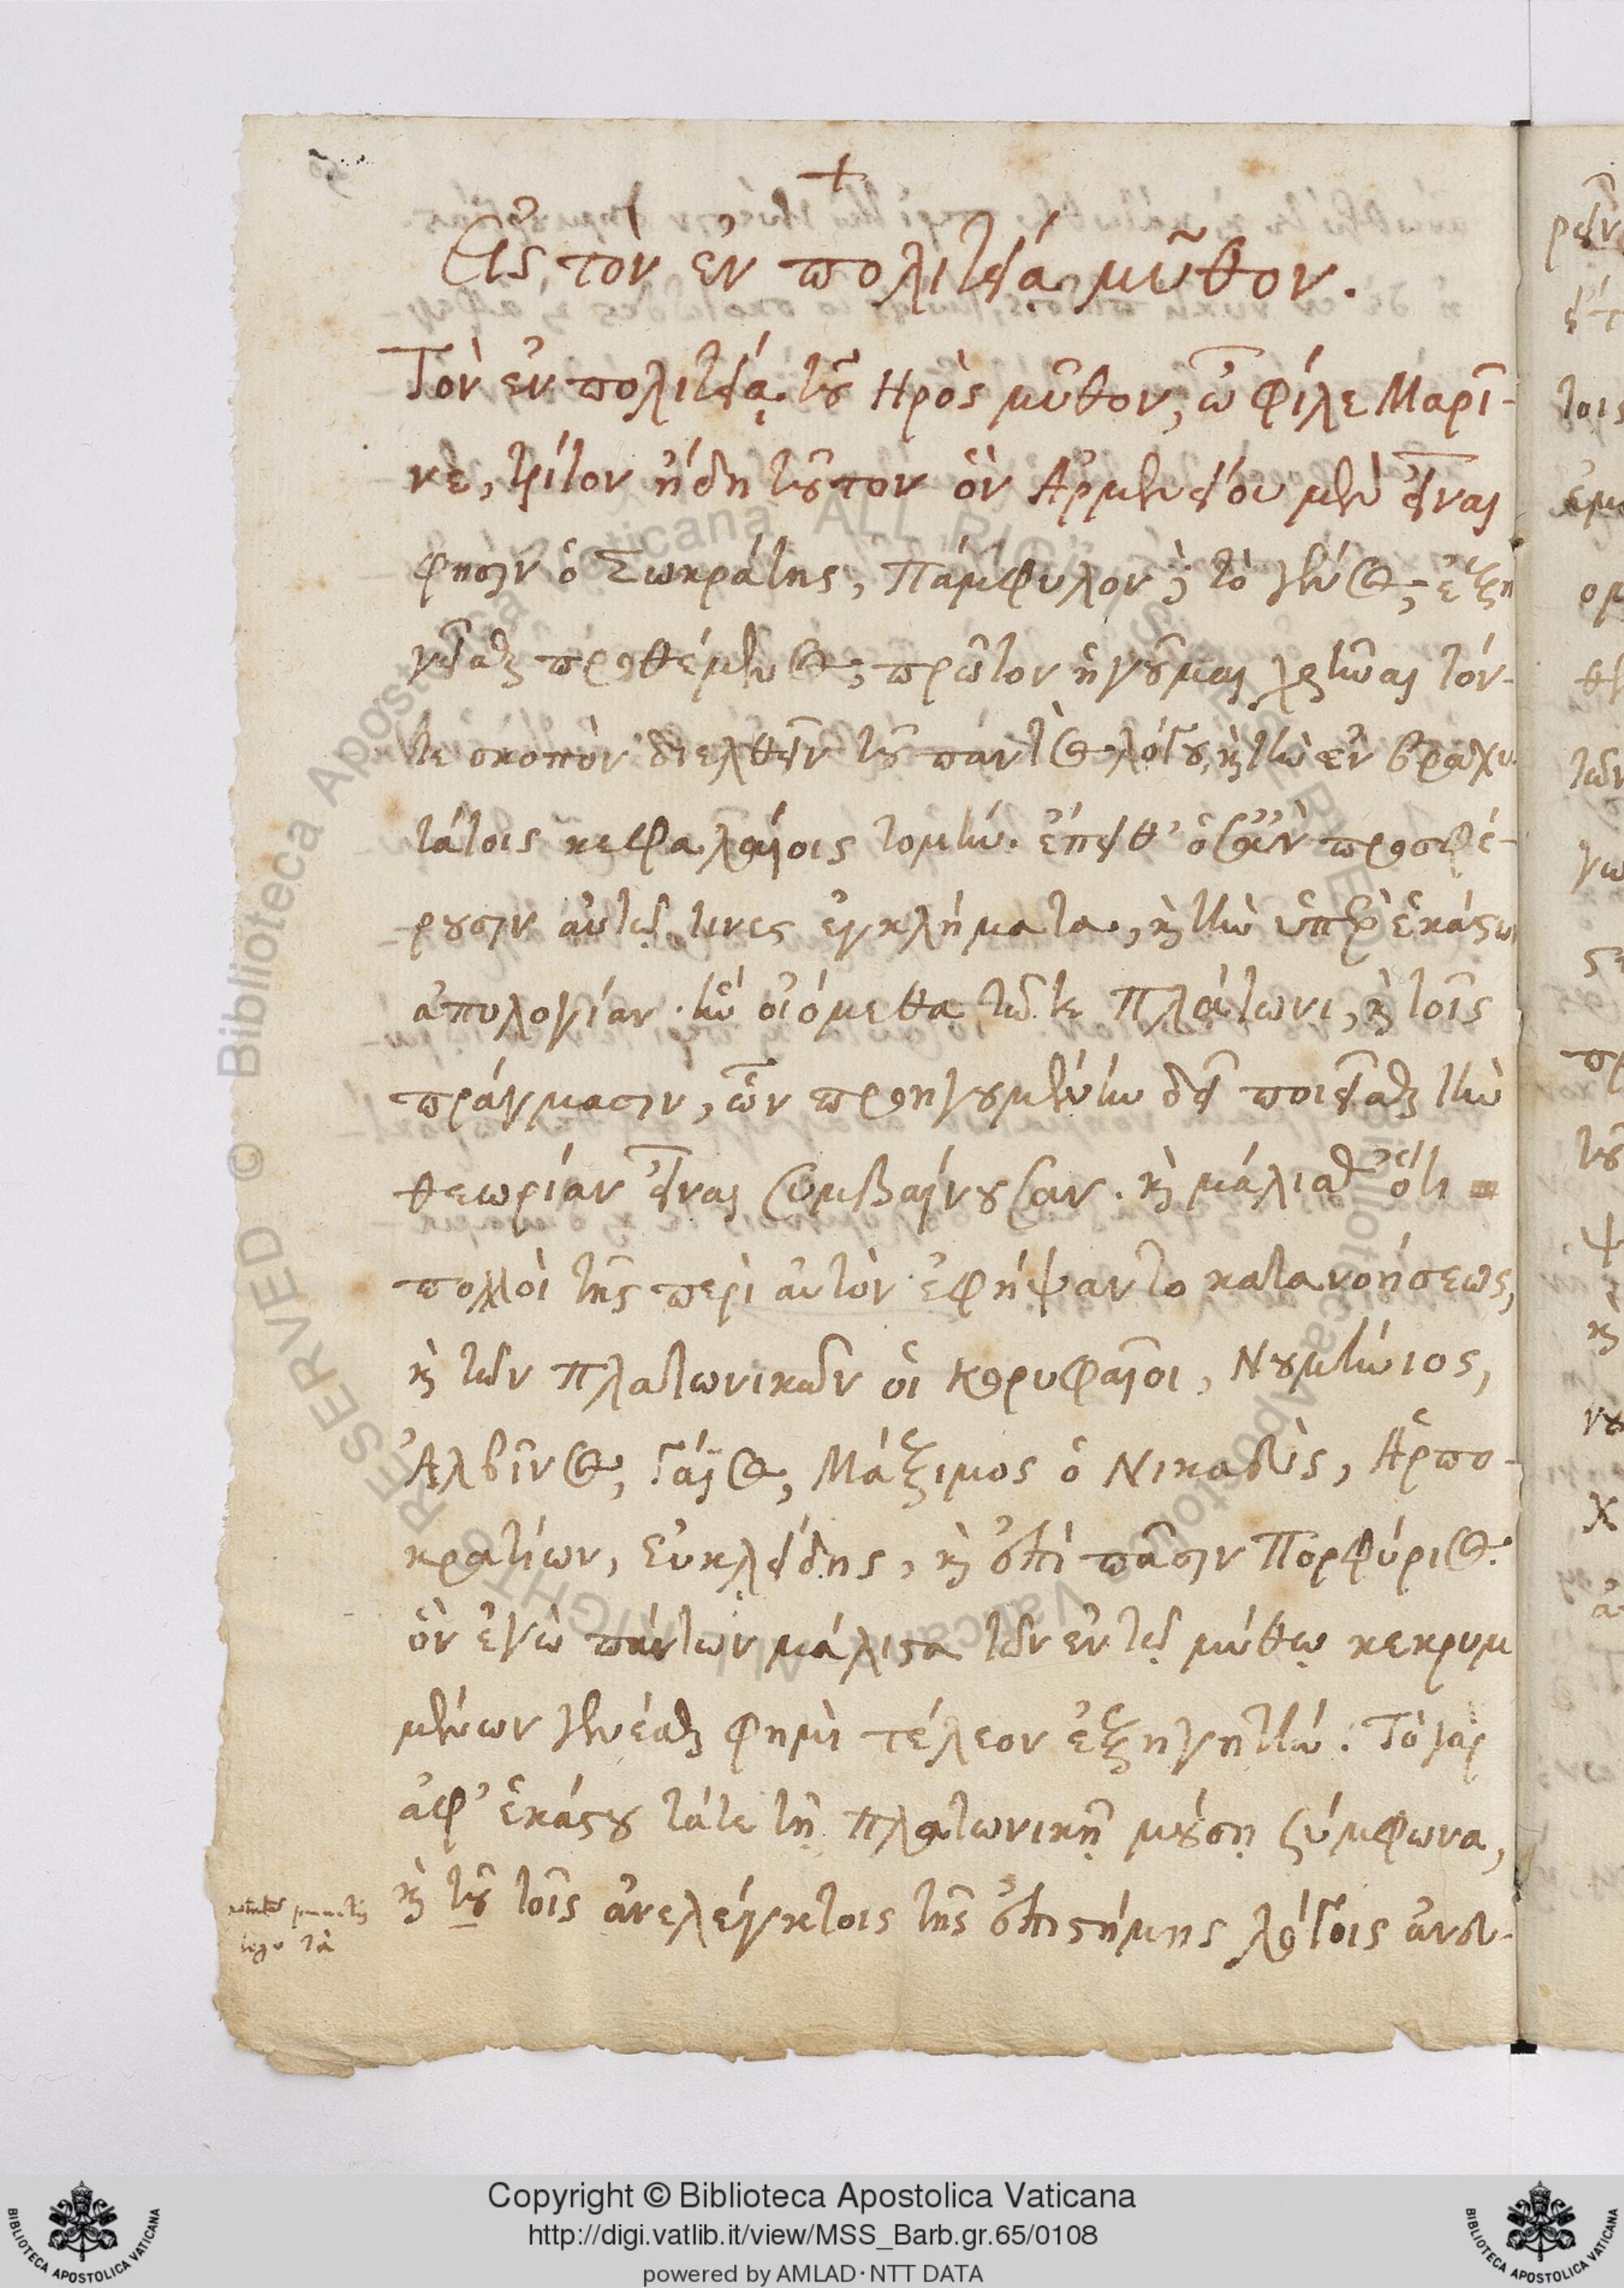 +
Εἰς τὸν ἐν πολιτείᾳ μῦθον.
Τὸν ἐν πολιτείᾳ τοῦ Ηρὸς μῦθον, ὦ φίλε Μαρῖ-
νε, τρίτον ἤδη τοῦτον ὃν Ἀρμενείου μὲν εἶναι
φησὶν ὁ Σωκράτης, Πάμφυλον δὲ τὸ γένος, ἐξη
γεῖσθαι προθέμενος, πρῶτον ἡγοῦμαι χρῆναι τόν-
τε σκοπὸν διελθεῖν τοῦ παντὸς λόγου, καὶ τὴν ἐν βραχυ
τάτοις κεφαλαίοις τομήν. ἔπειθ' ὅσα ἂν προσφέ-
ρουσιν αὐτῷ τινες ἐγκλήματα, καὶ τὴν ὑπὲρ ἑκάστων
ἀπολογίαν. ἣν οἰόμεθα τῷ τε Πλάτωνι, καὶ τοῖς
πράγμασιν, ὧν προηγουμένην δεῖ ποιεῖσθαι τὴν
θεωρίαν εἶναι συμβαίνουσαν. καὶ μάλισθ' ὅτι
πολλοὶ τῆς περὶ αὐτὸν ἐφήψαντο κατανοήσεως,
καὶ τῶν πλατωνικῶν οἱ κορυφαῖοι, Νουμήνιος,
Ἀλβῖνος, Γάϊος, Μάξιμος ὁ Νικαεὺς, Ἁρπο-
κρατίων, εὐκλείδης, καὶ ἐπὶ πᾶσιν Πορφύριος.
ὃν ἐγὼ πάντων μάλιστα τῶν ἐν τῷ μύθῳ κεκρυμ
μένων γενέσθαι φημὶ τέλεον ἐξηγητήν. Τὸ γὰρ
ἀφ' ἑκάστου τά τε τῇ πλατωνικῇ μούσῃ σύμφωνα,
καὶ τοῦ τοῖς ἀνελέγκτοις τῆς ἐπιστήμης λόγοις ἀνα-
lego τὰ
Copyright © Biblioteca Apostolica Vaticana
http://digi.vatlib.it/view/MSS_Barb.gr.65/0108
powered by AMLAD·NTT DATA
BIBLIOTECA APOSTOLICA VATICANA
BIBLIOTECA APOSTOLICA VATICANA
© Biblioteca Apostolica Vaticana ALL RIGHTS RESERVED